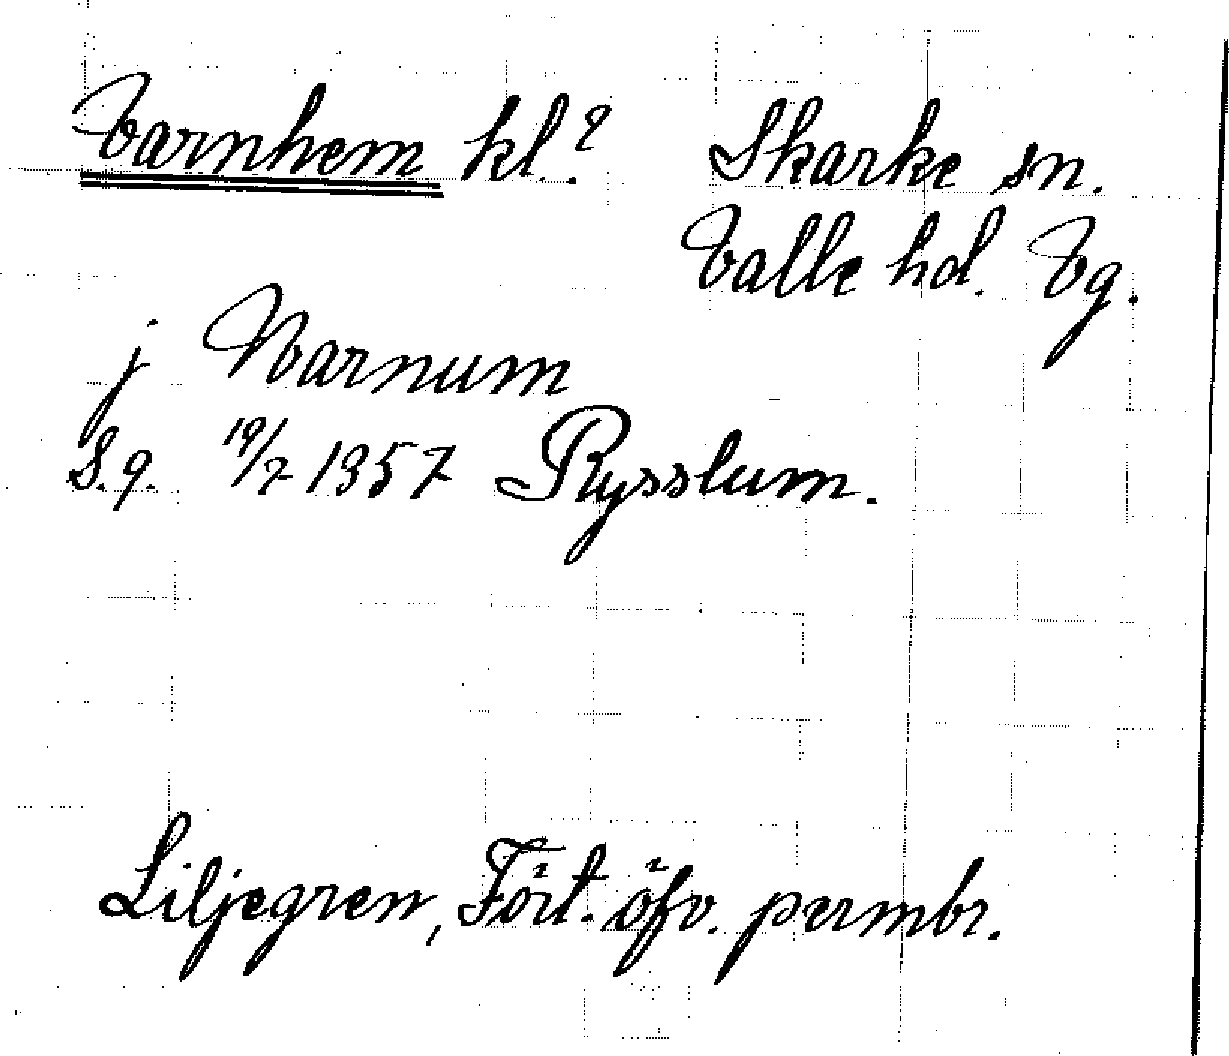 Varnhem kl.? Skarke sn.
Valle hd. Vg.
j Warnum
S.q. 19/2 1357 Rysslum.
Liljegren, Fört. öfv. permbr.